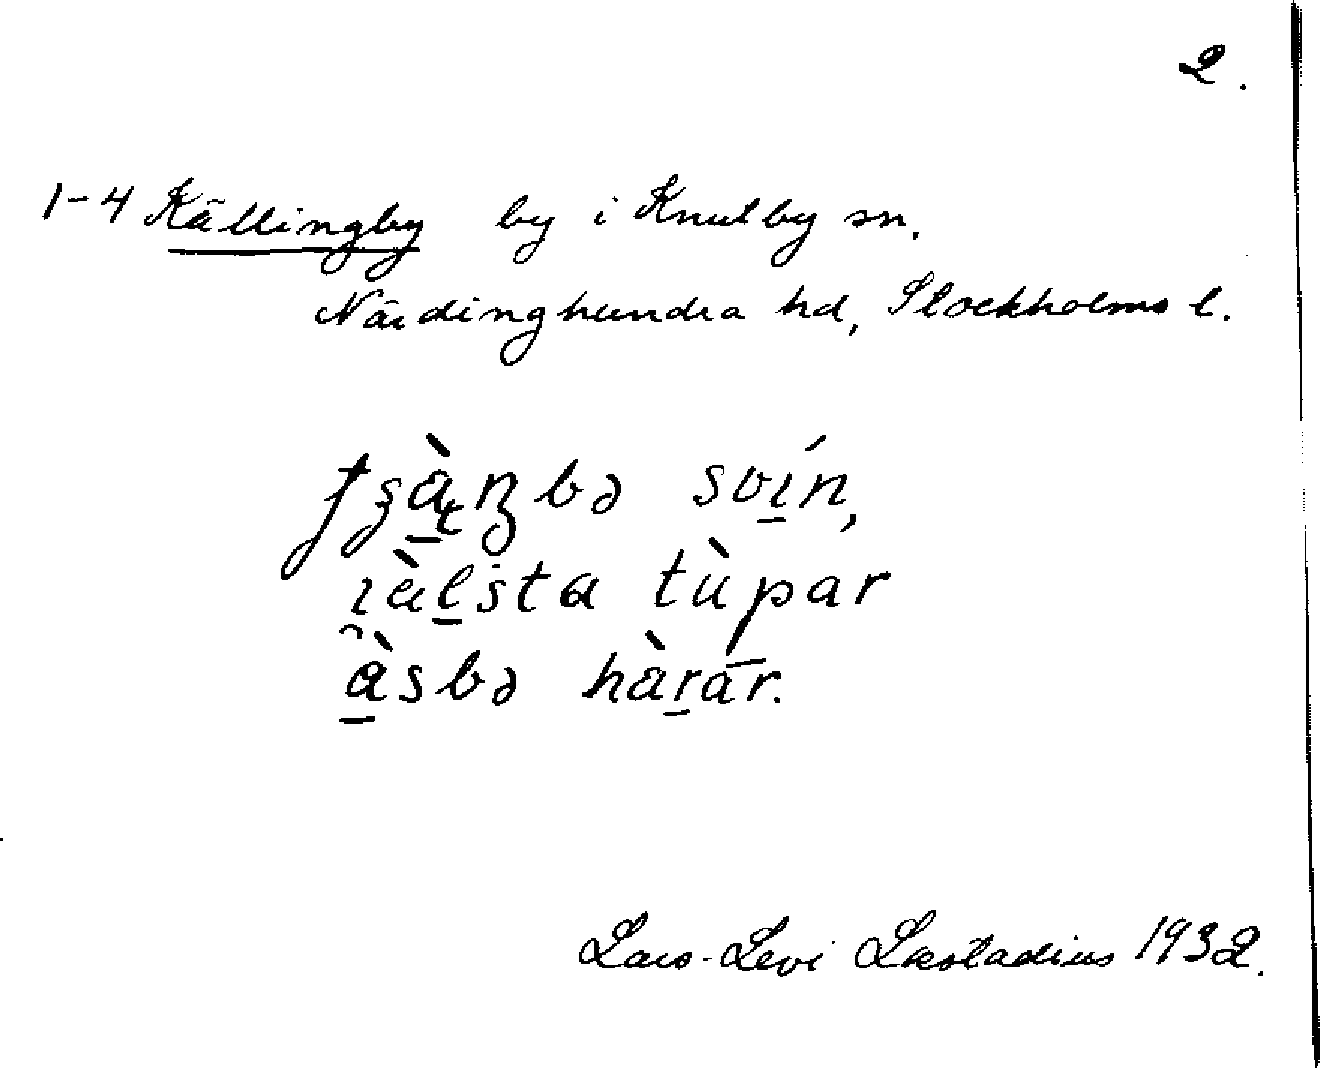 2.
1-4 Källingby by i Knutby sn.
Närdinghundra hd, Stockholms l.
svín,
tùpar
àsbə hàrār.
Lars-Levi Læstadius 1932.